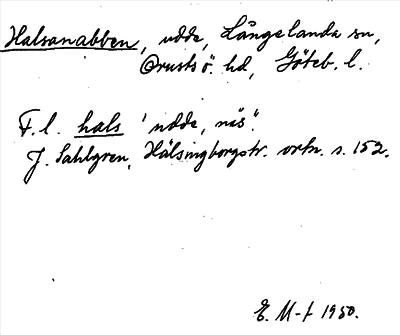 Halsanabben, udde, Långelanda sn,
Orusts ö. hd, Göteb. l.
F. l. hals 'udde, näs'.
J. Sahlgren, Hälsingborgstr. ortn. s. 152.
E. M-t 1950.